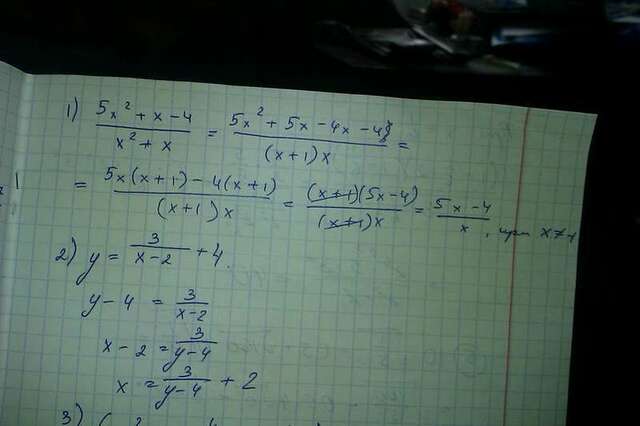 1) (5x² + x - 4)/(x² + x) = (5x² + 5x - 4x - 4)/((x+1)x) =
= (5x(x+1) - 4(x+1))/((x+1)x) = ((x+1)(5x-4))/((x+1)x) = (5x-4)/x, при x≠-1
2) y = 3/(x-2) + 4.
y - 4 = 3/(x-2)
x - 2 = 3/(y-4)
x = 3/(y-4) + 2
3)